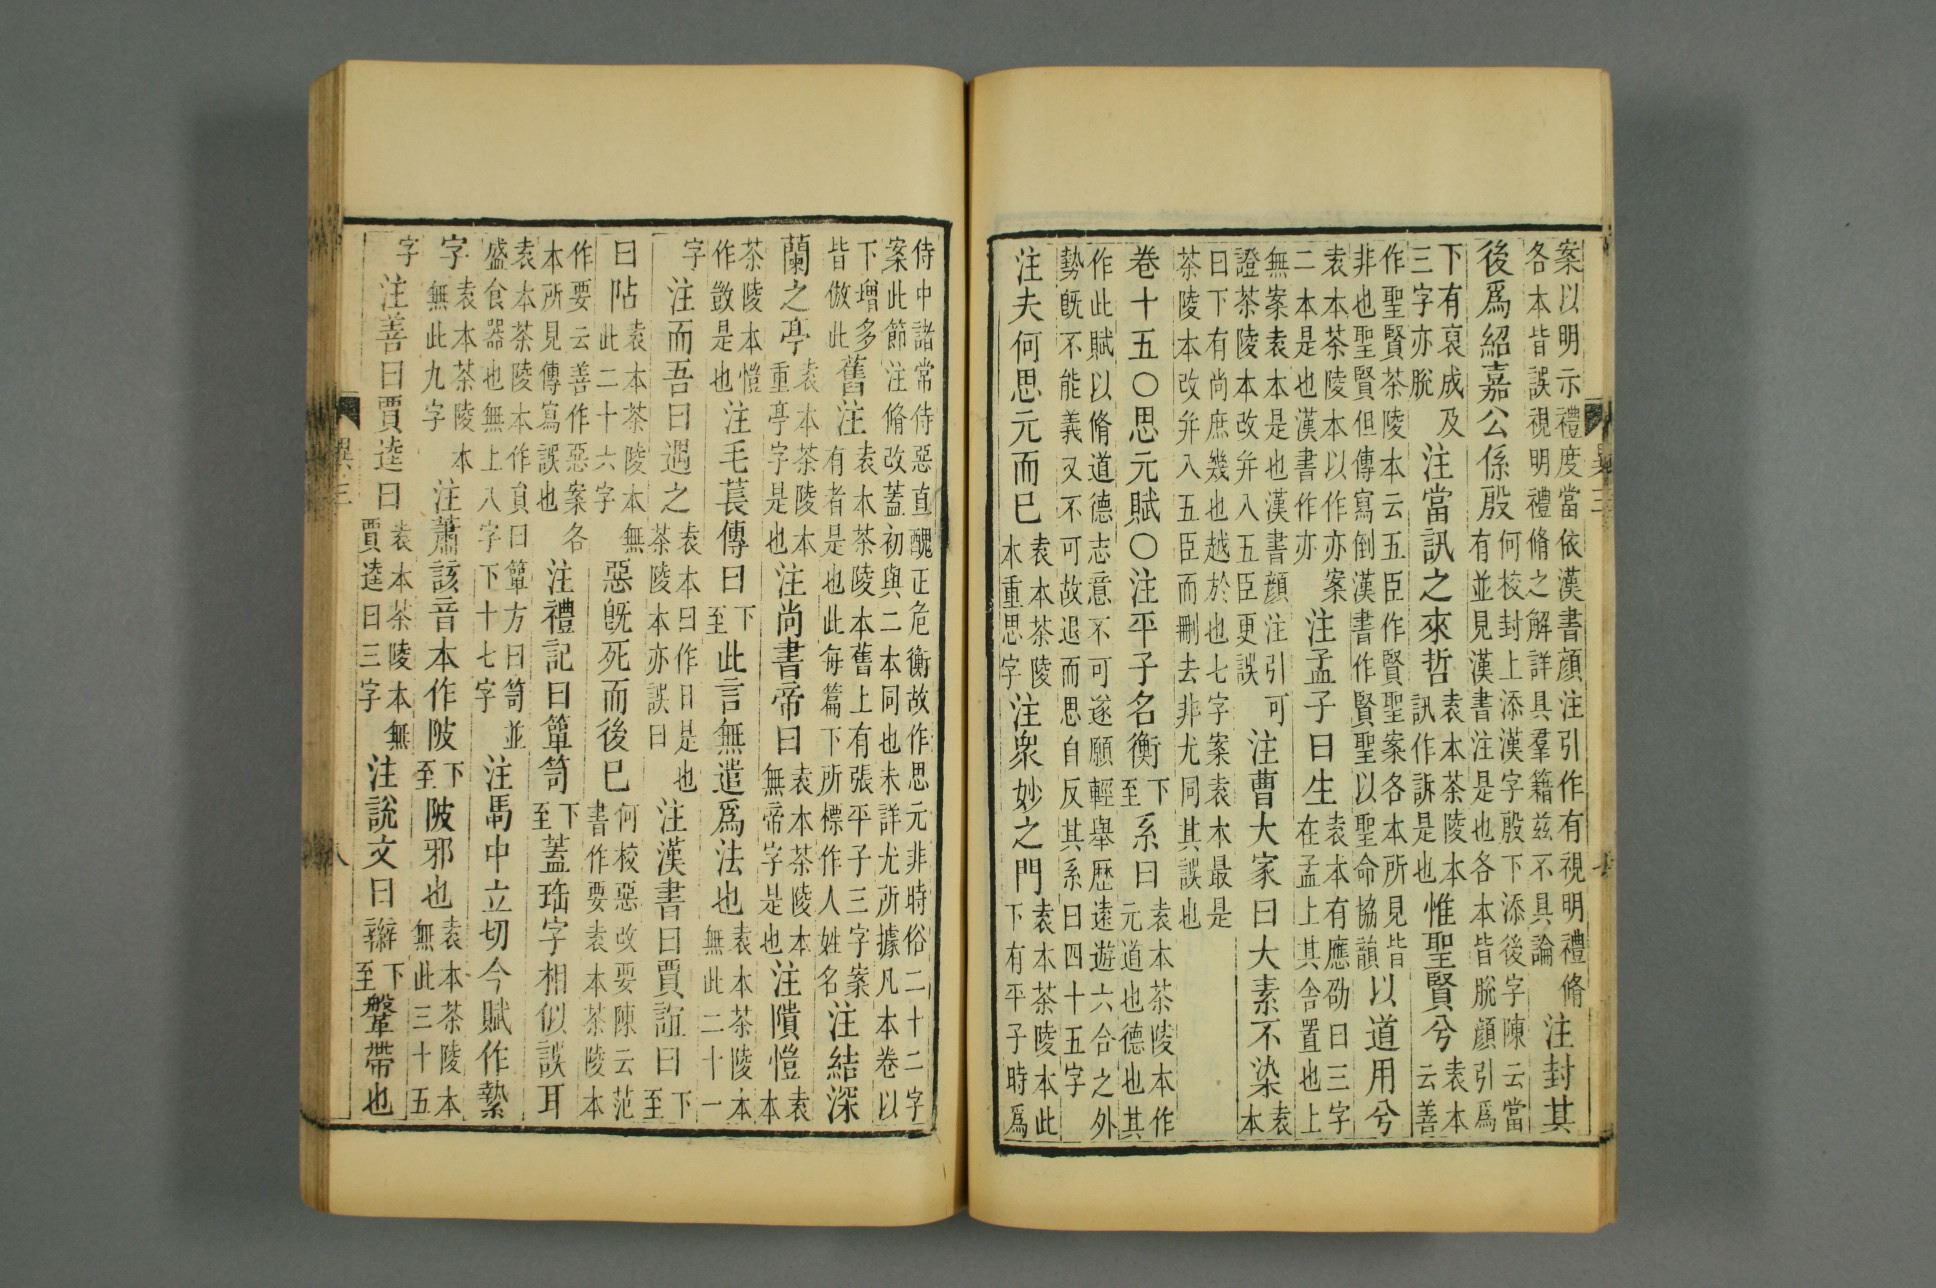 案以明示禮度當依漢書顏注引作有視明禮脩
各本皆誤視明禮脩之解詳具羣籍兹不具論
注封其
後爲紹嘉公係殷
何校封上添漢字殷下添後字陳云當
有並見漢書注是也各本皆脫顏引爲
下有裒成及
三字亦脫
注當訊之來哲
袁本茶陵本
訊作訴是也
惟聖賢兮
袁本
云善
作聖賢茶陵本云五臣作賢聖案各本所見皆
非也聖賢但傳寫倒漢書作賢聖以聖命協韻
以道用兮
袁本茶陵本以作亦案
二本是也漢書作亦
注孟子曰生
袁本有應劭曰三字
在孟上其舍置也上
無案袁本是也漢書顏注引可
證茶陵本改并八五臣更誤
注曹大家曰大素不染
袁
本
曰下有尚庶幾也越於也七字案袁本最是
茶陵本改并八五臣而刪去非尤同其誤也
卷十五○思元賦○注平子名衡
下
至
系曰
袁本茶陵本作
元道也德也其
作此賦以脩道德志意不可遂願輕舉歷遠遊六合之外
勢旣不能義又不可故退而思自反其系曰四十五字
注夫何思元而已
袁本茶陵
本重思字
注衆妙之門
袁本茶陵本此
下有平子時爲
侍中諸常侍惡直醜正危衡故作思元非時俗二十二字
案此節注脩改蓋初與二本同也未詳尤所據凡本卷以
下增多
皆倣此
舊注
袁本茶陵本舊上有張平子三字案
有者是也此每篇下所標作人姓名
注結深
蘭之亭
袁本茶陵本
重亭字是也
注尚書帝曰
袁本茶陵本
無帝字是也
注隤愷
袁
本
茶陵本愷
作敳是也
注毛萇傳曰
下
至
此言無遣爲法也
袁本茶陵本
無此二十一
字
注而吾曰遇之
袁本曰作日是也
茶陵本亦誤曰
注漢書曰賈誼曰
下
至
曰阽
袁本茶陵本無
此二十六字
惡旣死而後已
何校惡改要陳云范
書作要袁本茶陵本
作要云善作惡案各
本所見傳寫誤也
注禮記曰簞笥
下
至
蓋珤字相似誤耳
袁本茶陵本作負曰簞方曰笥並
盛食器也無上八字下十七字
注馽中立切今賦作縶
字
袁本茶陵本
無此九字
注蕭該音本作陂
下
至
陂邪也
袁本茶陵本
無此三十五
字
注善曰賈逵曰
袁本茶陵本無
賈逵曰三字
注說文曰辮
下
至
鞶帶也
異三
八